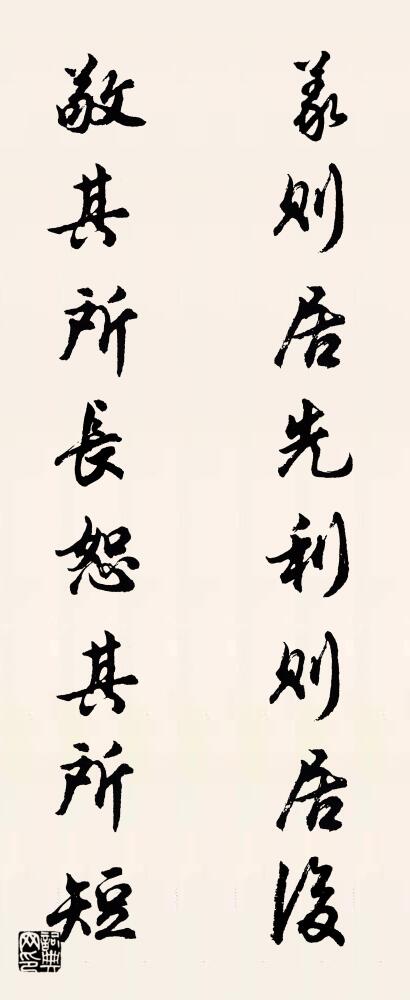 義則居先利則居後
敬其所長恕其所短